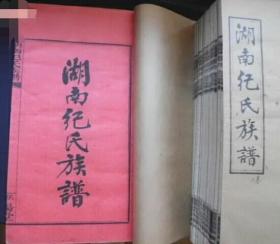 湖南纪氏族譜
湖南纪氏族譜